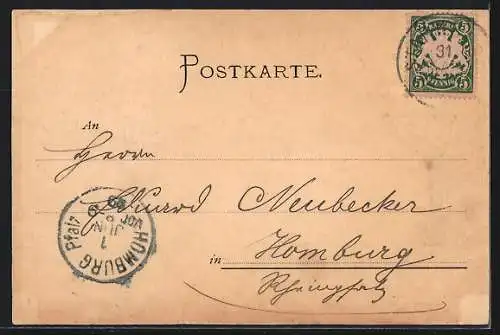 BAYERN
5 5
31
5 PFENNIG 5
POSTKARTE.
An
Herrn
Eduard Neubecker
in Homburg
Rheinpfalz
HOMBURG Pfalz
1 JUN
VOR
99